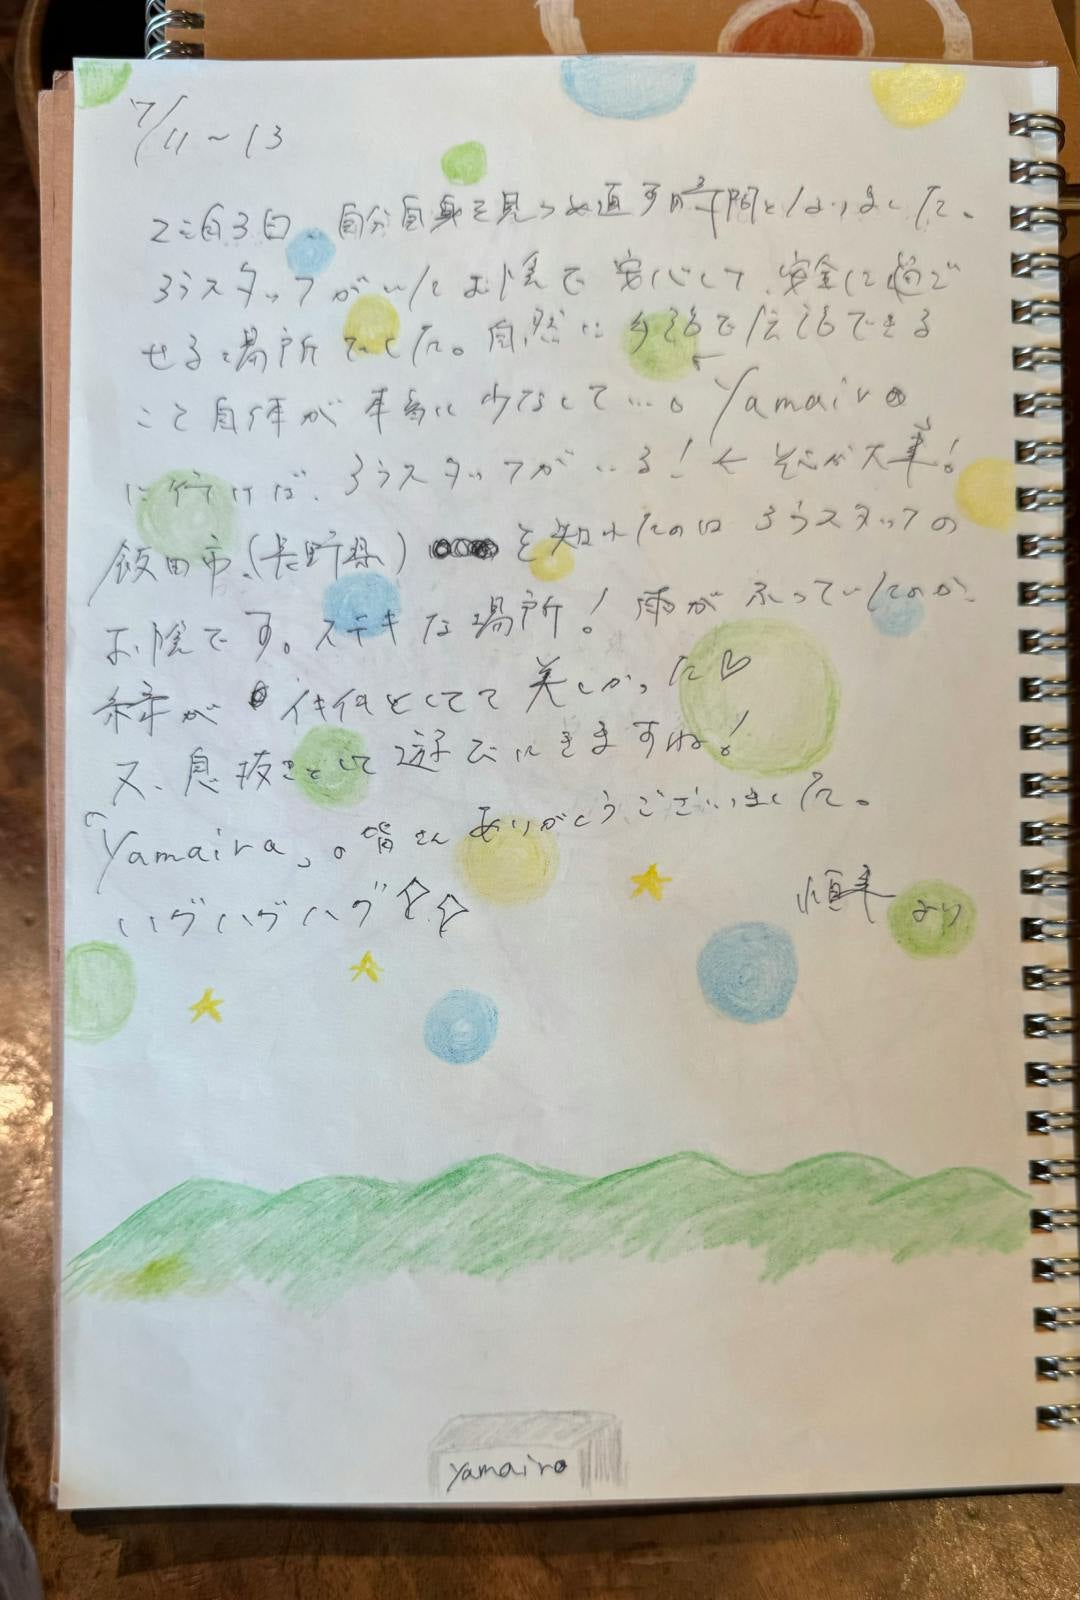 7/11~13
2泊3日、自分自身を見つめ直す時間となりました。
ろうスタッフがいたお陰で安心して、安全に過ご
せる場所でした。自然に手話で会話できる
こと自体が本当に少なくて…。Yamairo
に行けば、ろうスタッフがいる!←それが大事!
飯田市、(長野県)を知れたのはろうスタッフの
お陰です。ステキな場所!雨がふっていたのか、
緑が イキイキとしてて美しかった♡
又、息抜きとして遊びにきますね!
「Yamairo」の皆さんありがとうございました。
ハグハグハグ☆☆
より
yamairo